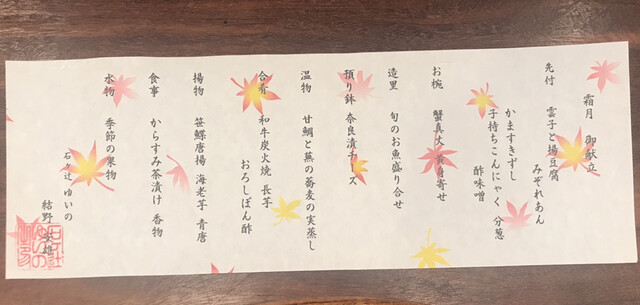 霜月 御献立
先付 雲子と揚豆腐
みぞれあん
かますきずし
子持ちこんにゃく 分葱
酢味噌
お椀 蟹真丈 黄身寄せ
造里 旬のお魚盛り合せ
預り鉢 奈良漬チーズ
温物 甘鯛と蕪の蕎麦の実蒸し
合肴 和牛炭火焼 長芋
おろしぽん酢
揚物 笹鰈唐揚 海老芋 青唐
食事 からすみ茶漬け 香物
水物 季節の果物
石々辻 ゆいの
結野 雄